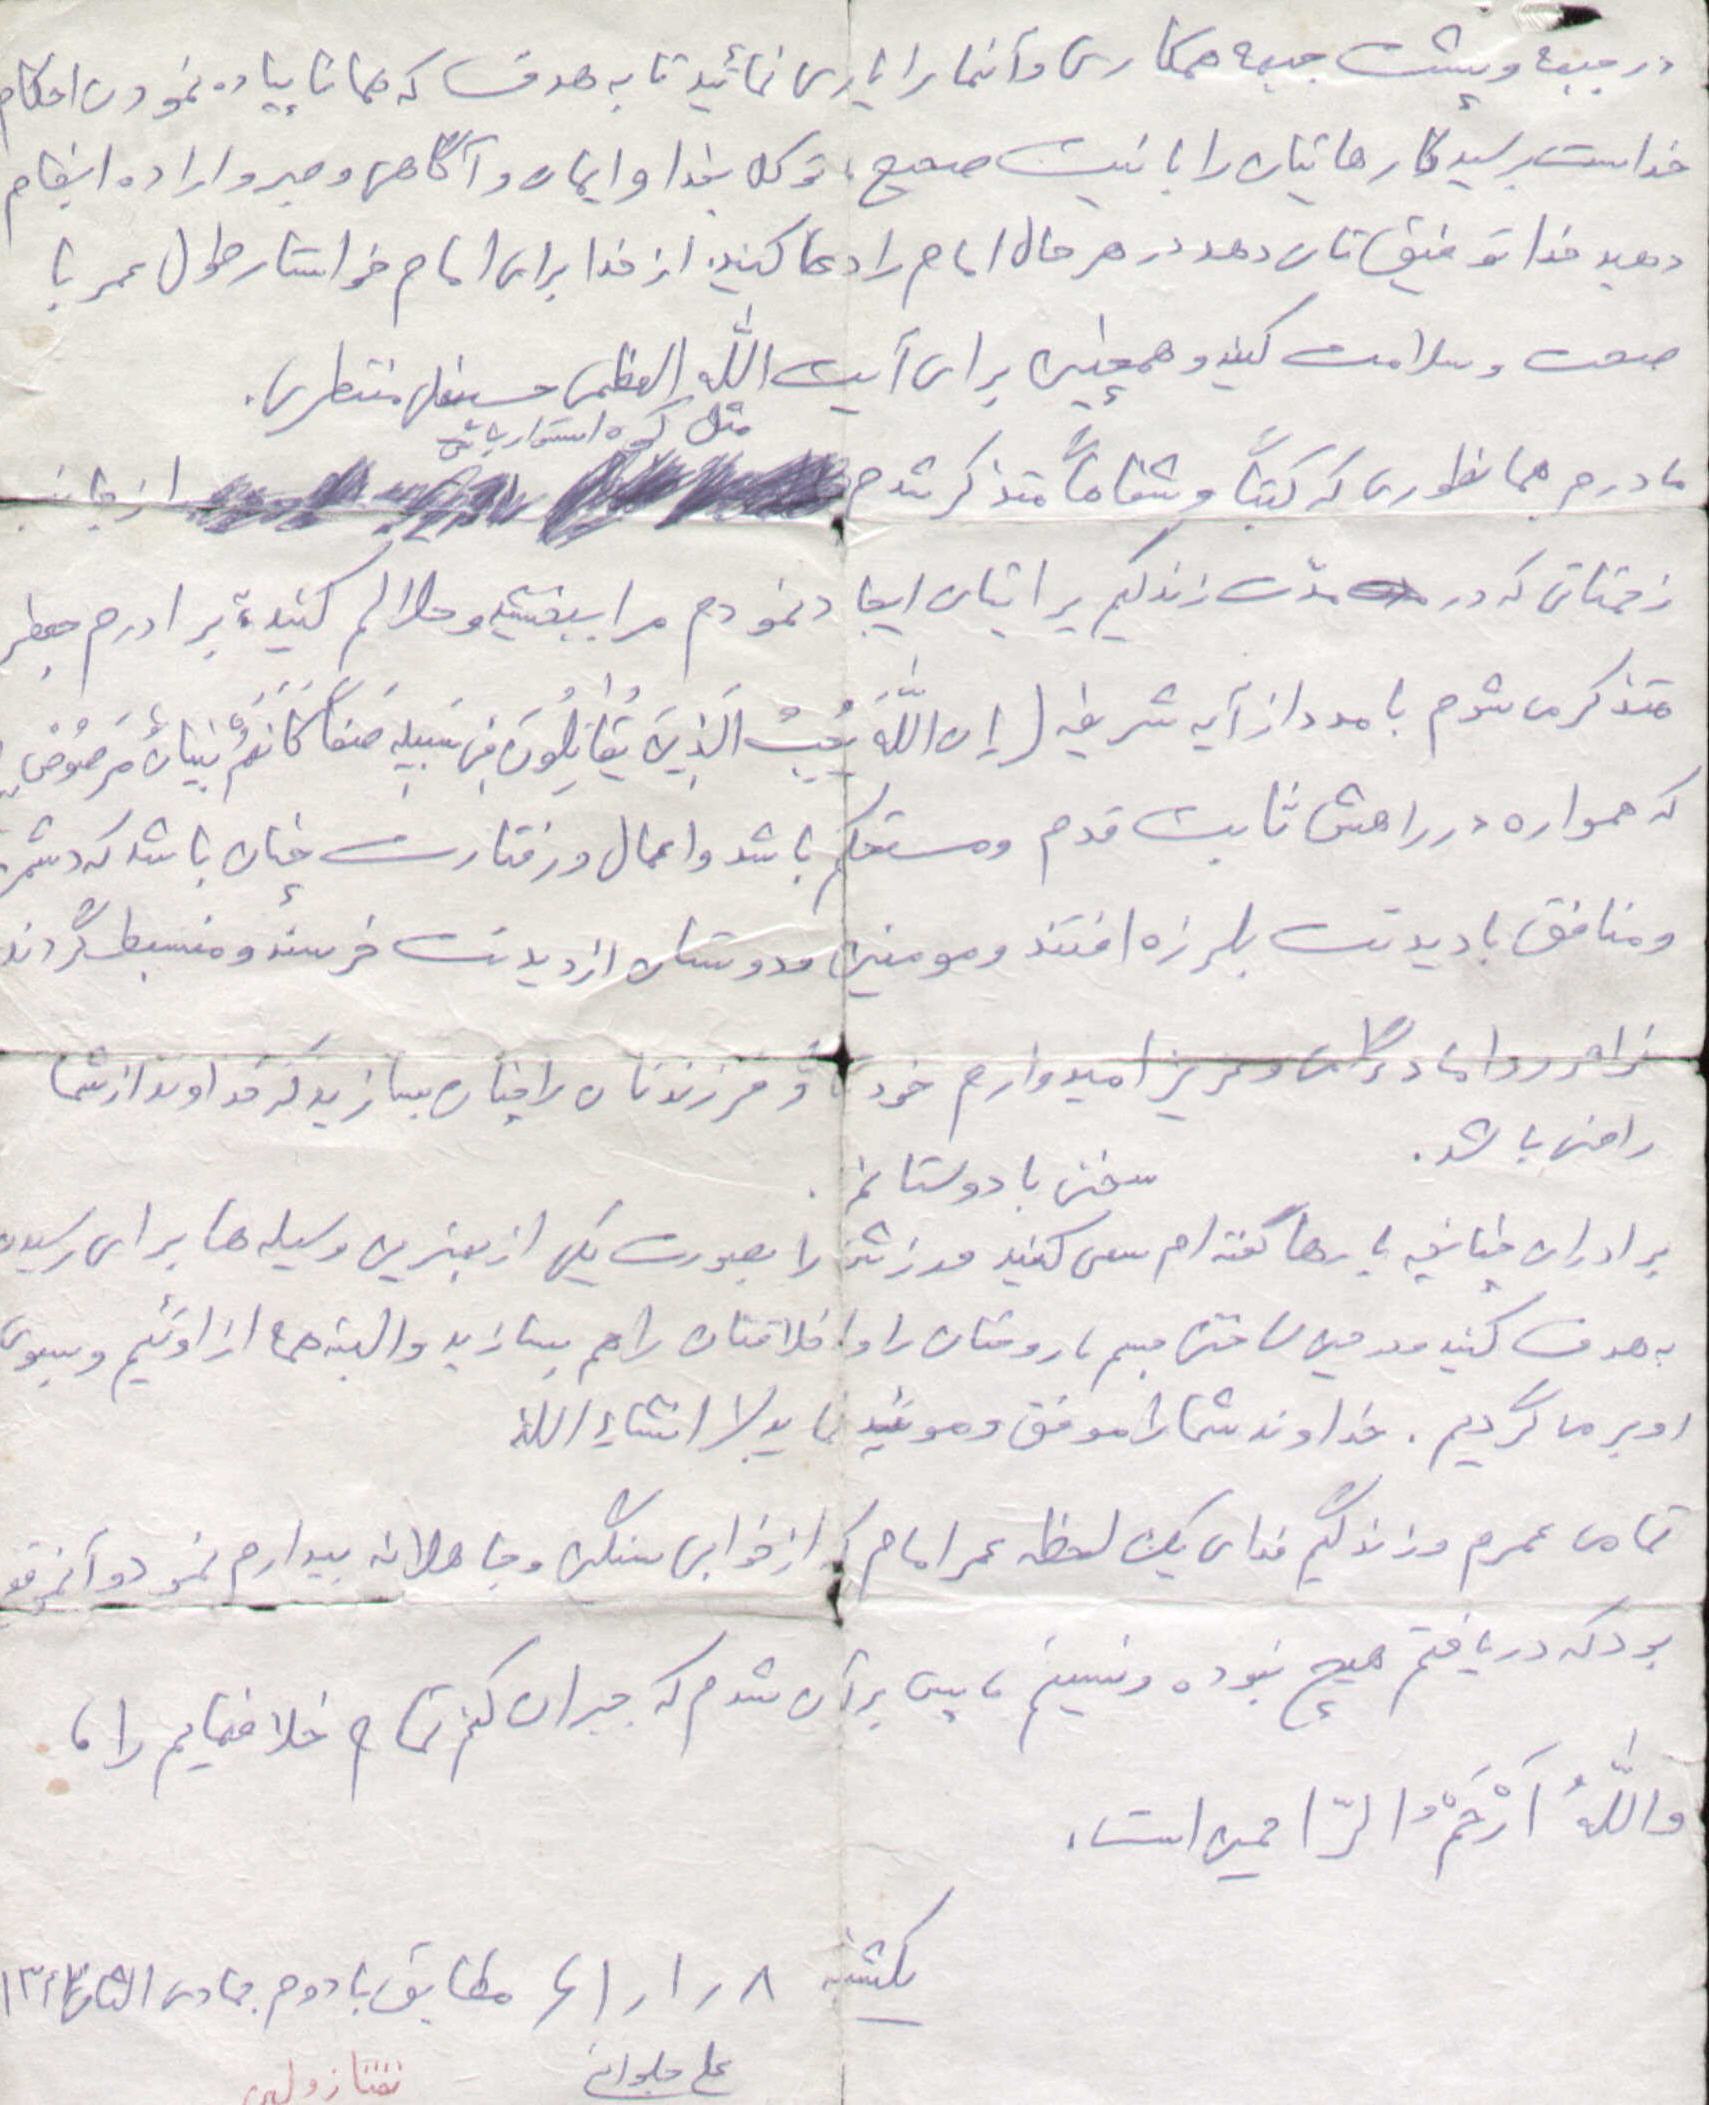 در جبهه و پشت جبهه همکاری و آنها را یاری نمائید تا به هدف که همانا پیاده نمودن احکام
خداست برسید کارهایتان را با نیت صحیح، توکل بخدا و ایمان و آگاهی و صبر و اراده انجام
دهید خدا توفیق تان دهد در هر حال امام را دعا کنید. از خدا برای امام خواستار طول عمر با
صحت و سلامت کنید و همچنین برای آیت الله العظمی حسینعلی منتظری.
مثل کوه استوار باش
مادرم همانطوری که کتباً و شفاهاً متذکر شدم از
زحماتی که در مدّت زندگیم برایتان ایجاد نمودم مرا ببخشید و حلالم کنید، برادرم جعفر
متذکر می شوم با مدد از آیه شریفه (إن اللّهَ یُحِبُّ الَّذِینَ یُقاتِلُونَ فِی سَبِیلِهِ صَفّاً کَأنَهُم بُنیانٌ مَرصُوصٌ)
که همواره در راهش ثابت قدم و مستحکم باشد و اعمال و رفتارت چنان باشد که دشمن
و منافق با دیدنت بلرزه افتند و مومنین و دوستان از دیدنت خرسند و منبسط گردند
خواهر و داماد گرامی و عزیز امیدوارم خود و فرزندتان را چنان بسازید که خداوند از شما
راضی باشد.
سخنی با دوستانم.
برادران چنانچه بارها گفته ام سعی کنید ورزش را بصورت یکی از بهترین وسیله ها برای رسیدن
به هدف کنید و در حین ساختن جسم، روحتان را و اخلاقتان را هم بسازید والبته همه از اوئیم و بسوی
او بر می گردیم. خداوند شما را موفق و موئید نماید انشاء الله
تمامی عمرم و زندگیم فدای یک لحظه عمر امام که از خوابی سنگین و جاهلانه بیدارم نمود و آنموقع
بود که دریافتم هیچ نبوده و نیستم، پس بر آن شدم که جبران کنم تمام خلافهایم را،
واللّهُ أرْحَمْ الرّاحمین است.
یکشنبه ۸ ر ۱ ر ۶۱ مطابق با دوم جمادی الثانی
علی جلوانی